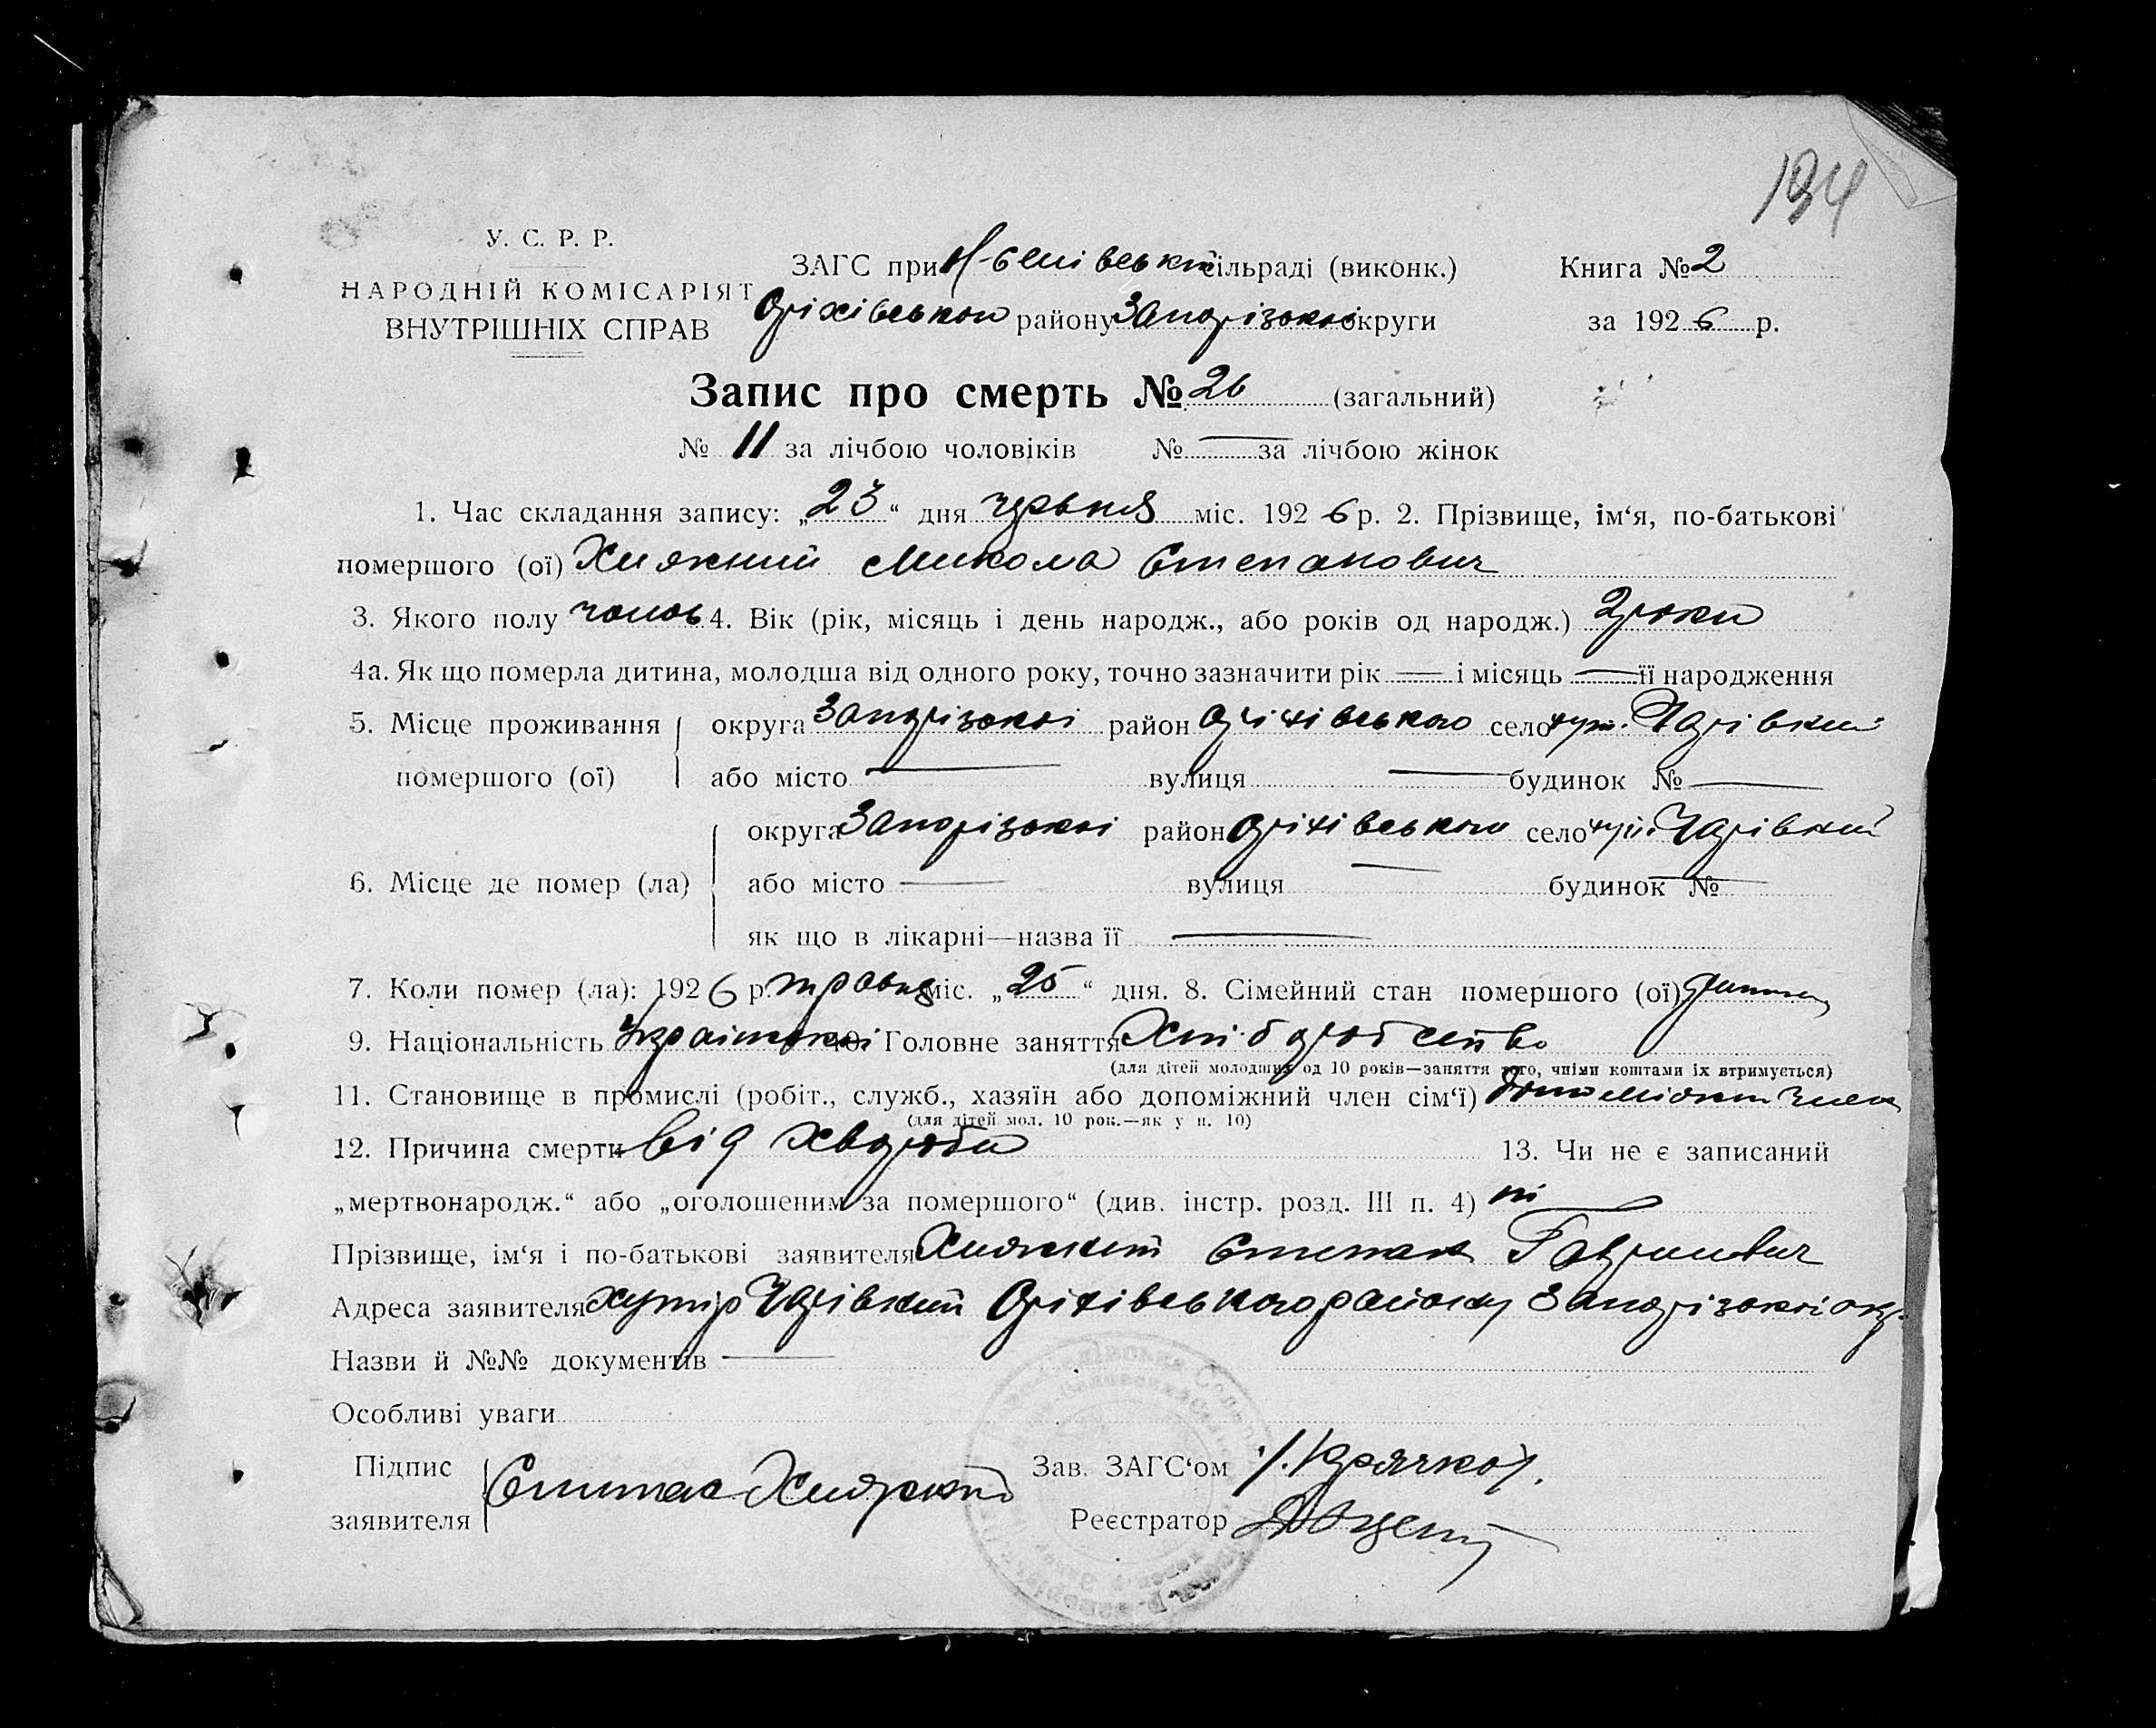 194
У. С. Р. Р.
НАРОДНІЙ КОМІСАРІЯТ
ВНУТРІШНІХ СПРАВ
ЗАГС при сільраді (виконк.)
Оріхівського району Запорізької округи
Книга № 2
за 1926 р.
Запис про смерть № 26 (загальний)
№ 11 за лічбою чоловіків № — за лічбою жінок
1. Час складання запису: „23“ дня червня міс. 1926 р. 2. Прізвище, ім‘я, по-батькові
помершого (ої) Микола Степанович
3. Якого полу чолов 4. Вік (рік, місяць і день народж., або років од народж.) 2 роки
4а. Як що померла дитина, молодша від одного року, точно зазначити рік — і місяць — її народження
5. Місце проживання помершого (ої) округа Запорізької район Оріхівського село хут.
або місто — вулиця — будинок № —
6. Місце де помер (ла) округа Запорізької район Оріхівського село хут.
або місто — вулиця — будинок № —
як що в лікарні—назва її —
7. Коли помер (ла): 1926 р. травня міс. „25“ дня. 8. Сімейний стан помершого (ої) дитина
9. Національність 10. Головне заняття Хліборобство
(для дітей молодших од 10 років—заняття того, чиїми коштами їх втримується)
11. Становище в промислі (робіт., служб., хазяїн або допоміжний член сім‘ї) допоміжний член
(для дітей мол. 10 рок.—як у п. 10)
12. Причина смерти від хвороби 13. Чи не є записаний
„мертвонародж.“ або „оголошеним за помершого“ (див. інстр. розд. III п. 4) ні
Прізвище, ім‘я і по-батькові заявителя Степан Гаврилович
Адреса заявителя хутір Оріхівського району Запорізької окр.
Назви й №№ документів —
Особливі уваги
Підпис заявителя Степан
Зав. ЗАГС‘ом
Реєстратор